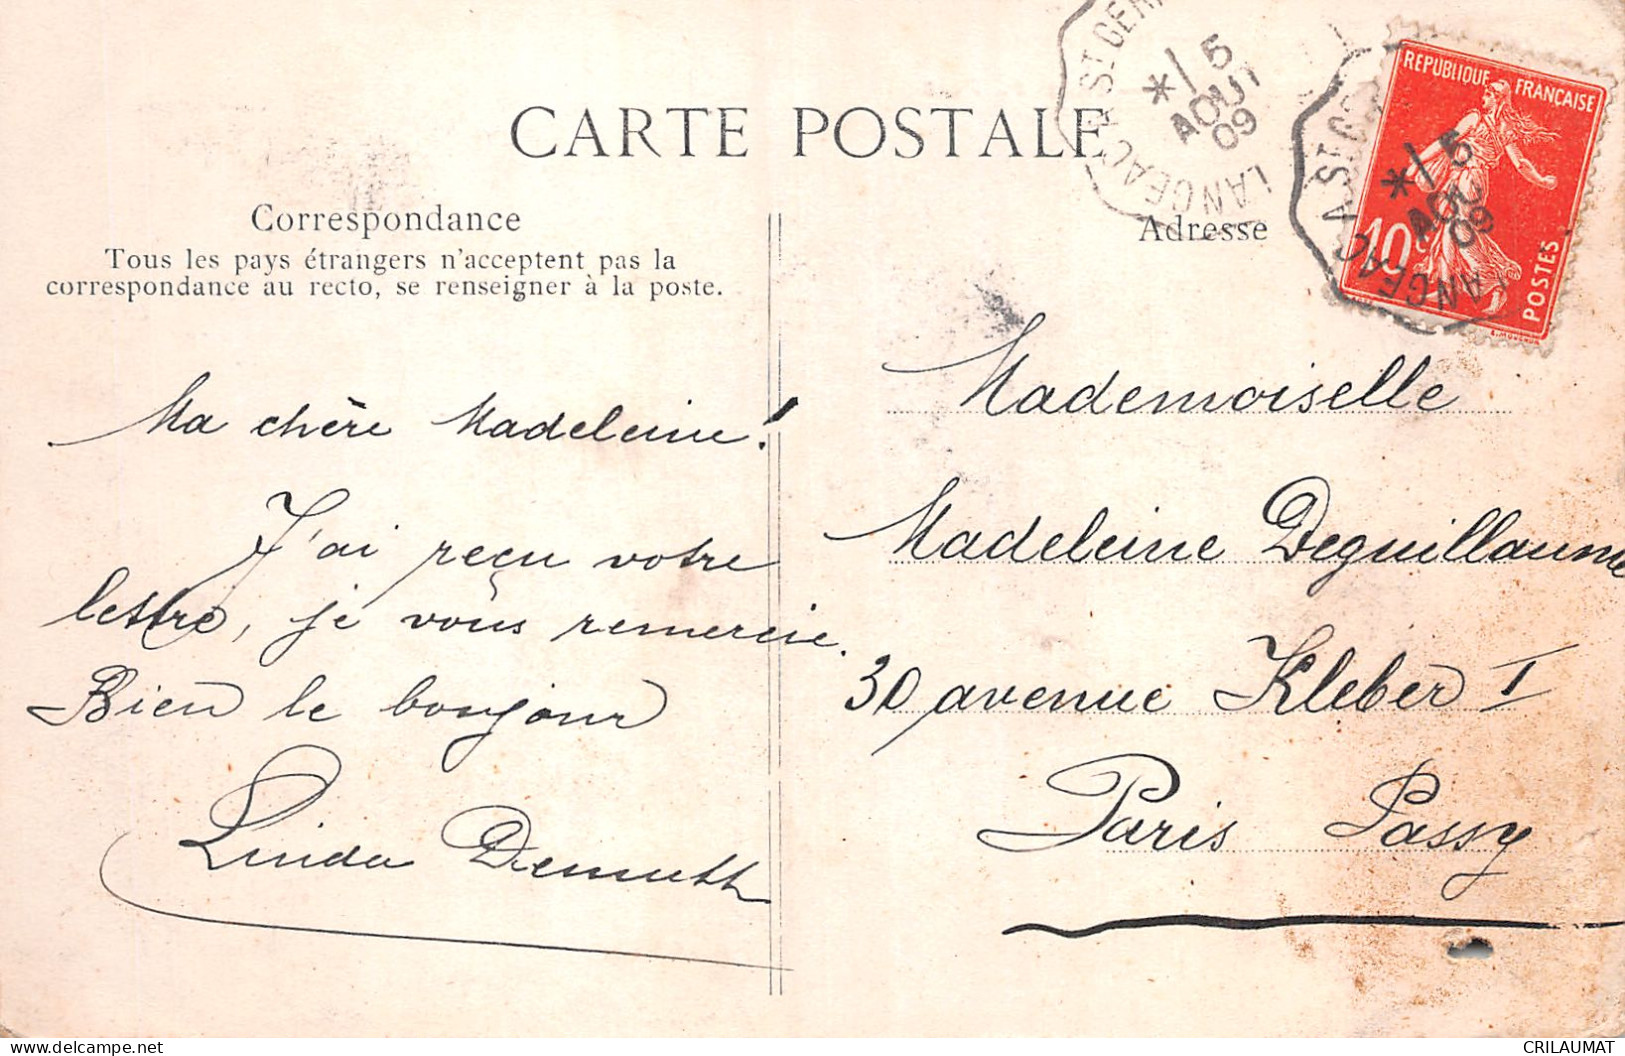 CARTE POSTALE
Correspondance
Tous les pays étrangers n'acceptent pas la
correspondance au recto, se renseigner à la poste.
Ma chère Madeleine!
J'ai reçu votre
lettre, je vous remercie.
Bien le bonjour
Linda Demuth
Adresse
Mademoiselle
Madeleine Deguillaume
30 avenue Kleber I
Paris Passy
LANGEAC A ST GER
* 1 5
AOUT
09
REPUBLIQUE FRANÇAISE
10c
POSTES
LANGEAC A ST G
* 1 5
AOU
09
CRILAUMAT